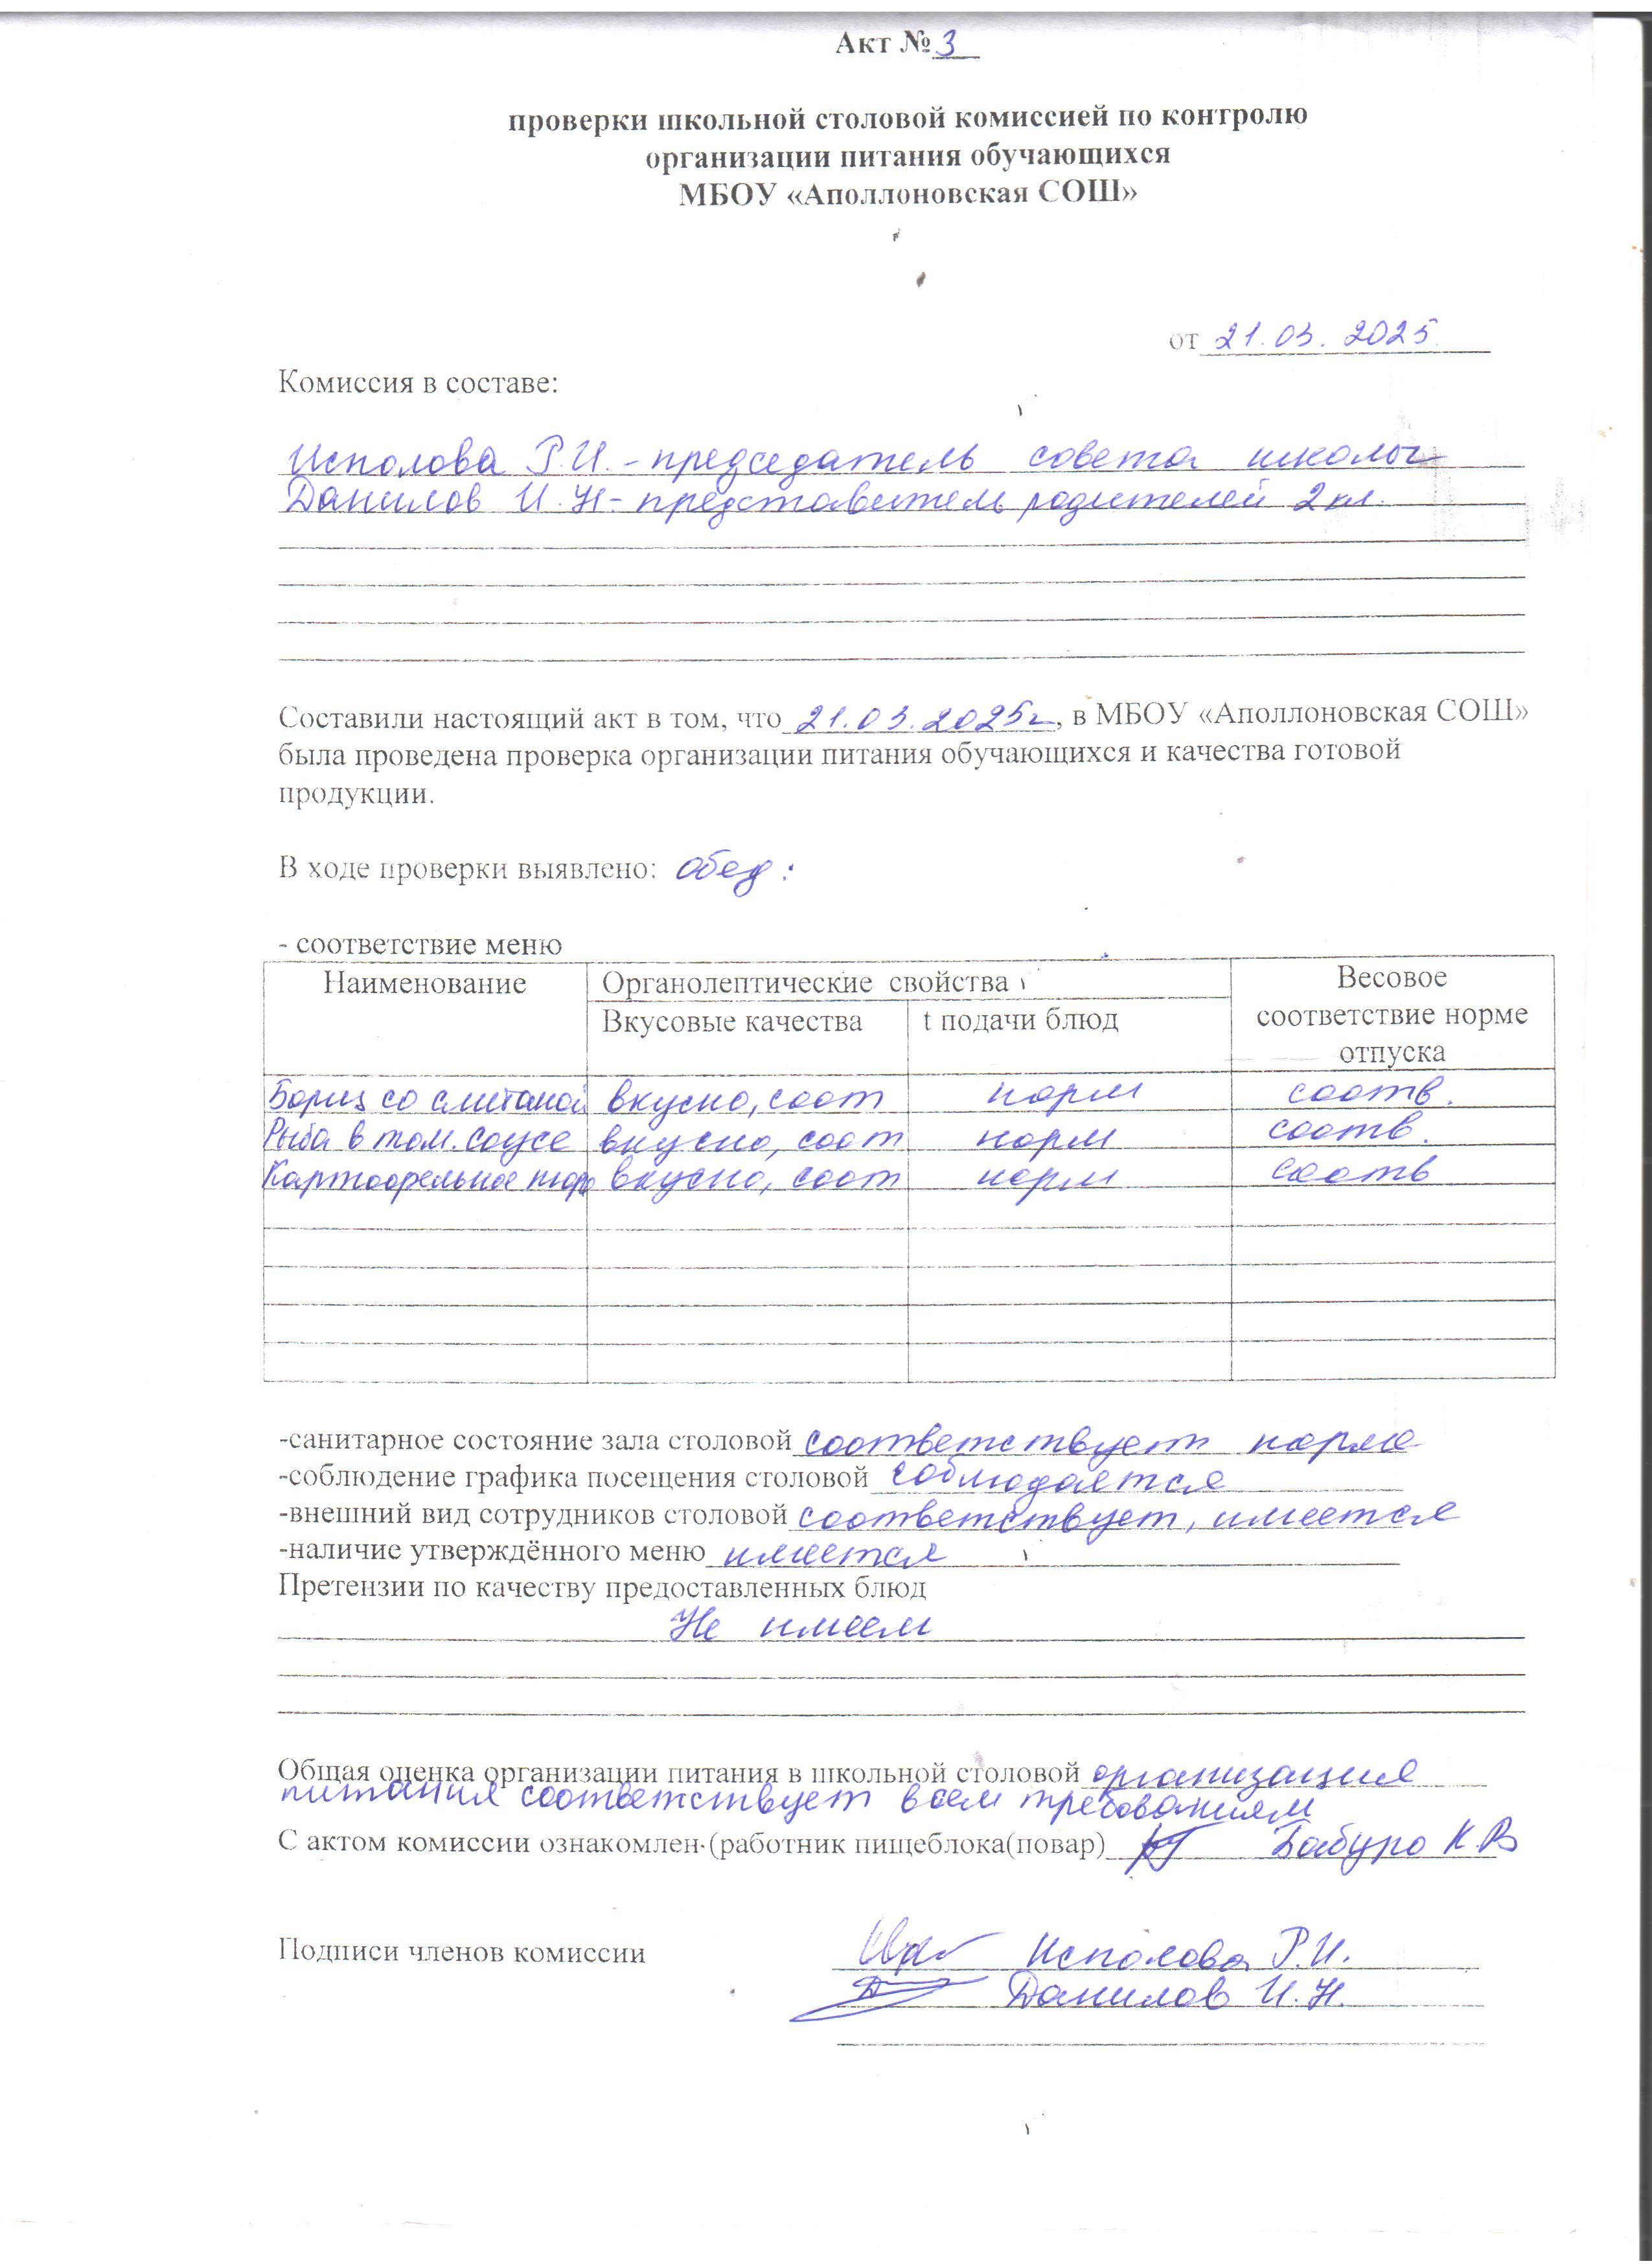 Акт № 3
проверки школьной столовой комиссией по контролю
организации питания обучающихся
МБОУ «Аполлоновская СОШ»
от 21.03.2025
Комиссия в составе:
Исполова Р.И. - председатель совета школы
Данилов И.Н - представитель родителей 2 кл.
Составили настоящий акт в том, что 21.03.2025г, в МБОУ «Аполлоновская СОШ»
была проведена проверка организации питания обучающихся и качества готовой
продукции.
В ходе проверки выявлено: обед:
- соответствие меню
Наименование Органолептические свойства Весовое соответствие норме отпуска
Вкусовые качества t подачи блюд
Борщ со сметаной вкусно, соот норм соотв.
Рыба в том. соусе вкусно, соот норм соотв.
Картофельное пюре вкусно, соот норм соотв
-санитарное состояние зала столовой соответствует норме
-соблюдение графика посещения столовой соблюдается
-внешний вид сотрудников столовой соответствует, имеется
-наличие утверждённого меню имеется
Претензии по качеству предоставленных блюд
Не имеем
Общая оценка организации питания в школьной столовой организация
питания соответствует всем требованиям
С актом комиссии ознакомлен (работник пищеблока(повар) Бабуро К.В
Подписи членов комиссии Исполова Р.И.
Данилов И.Н.